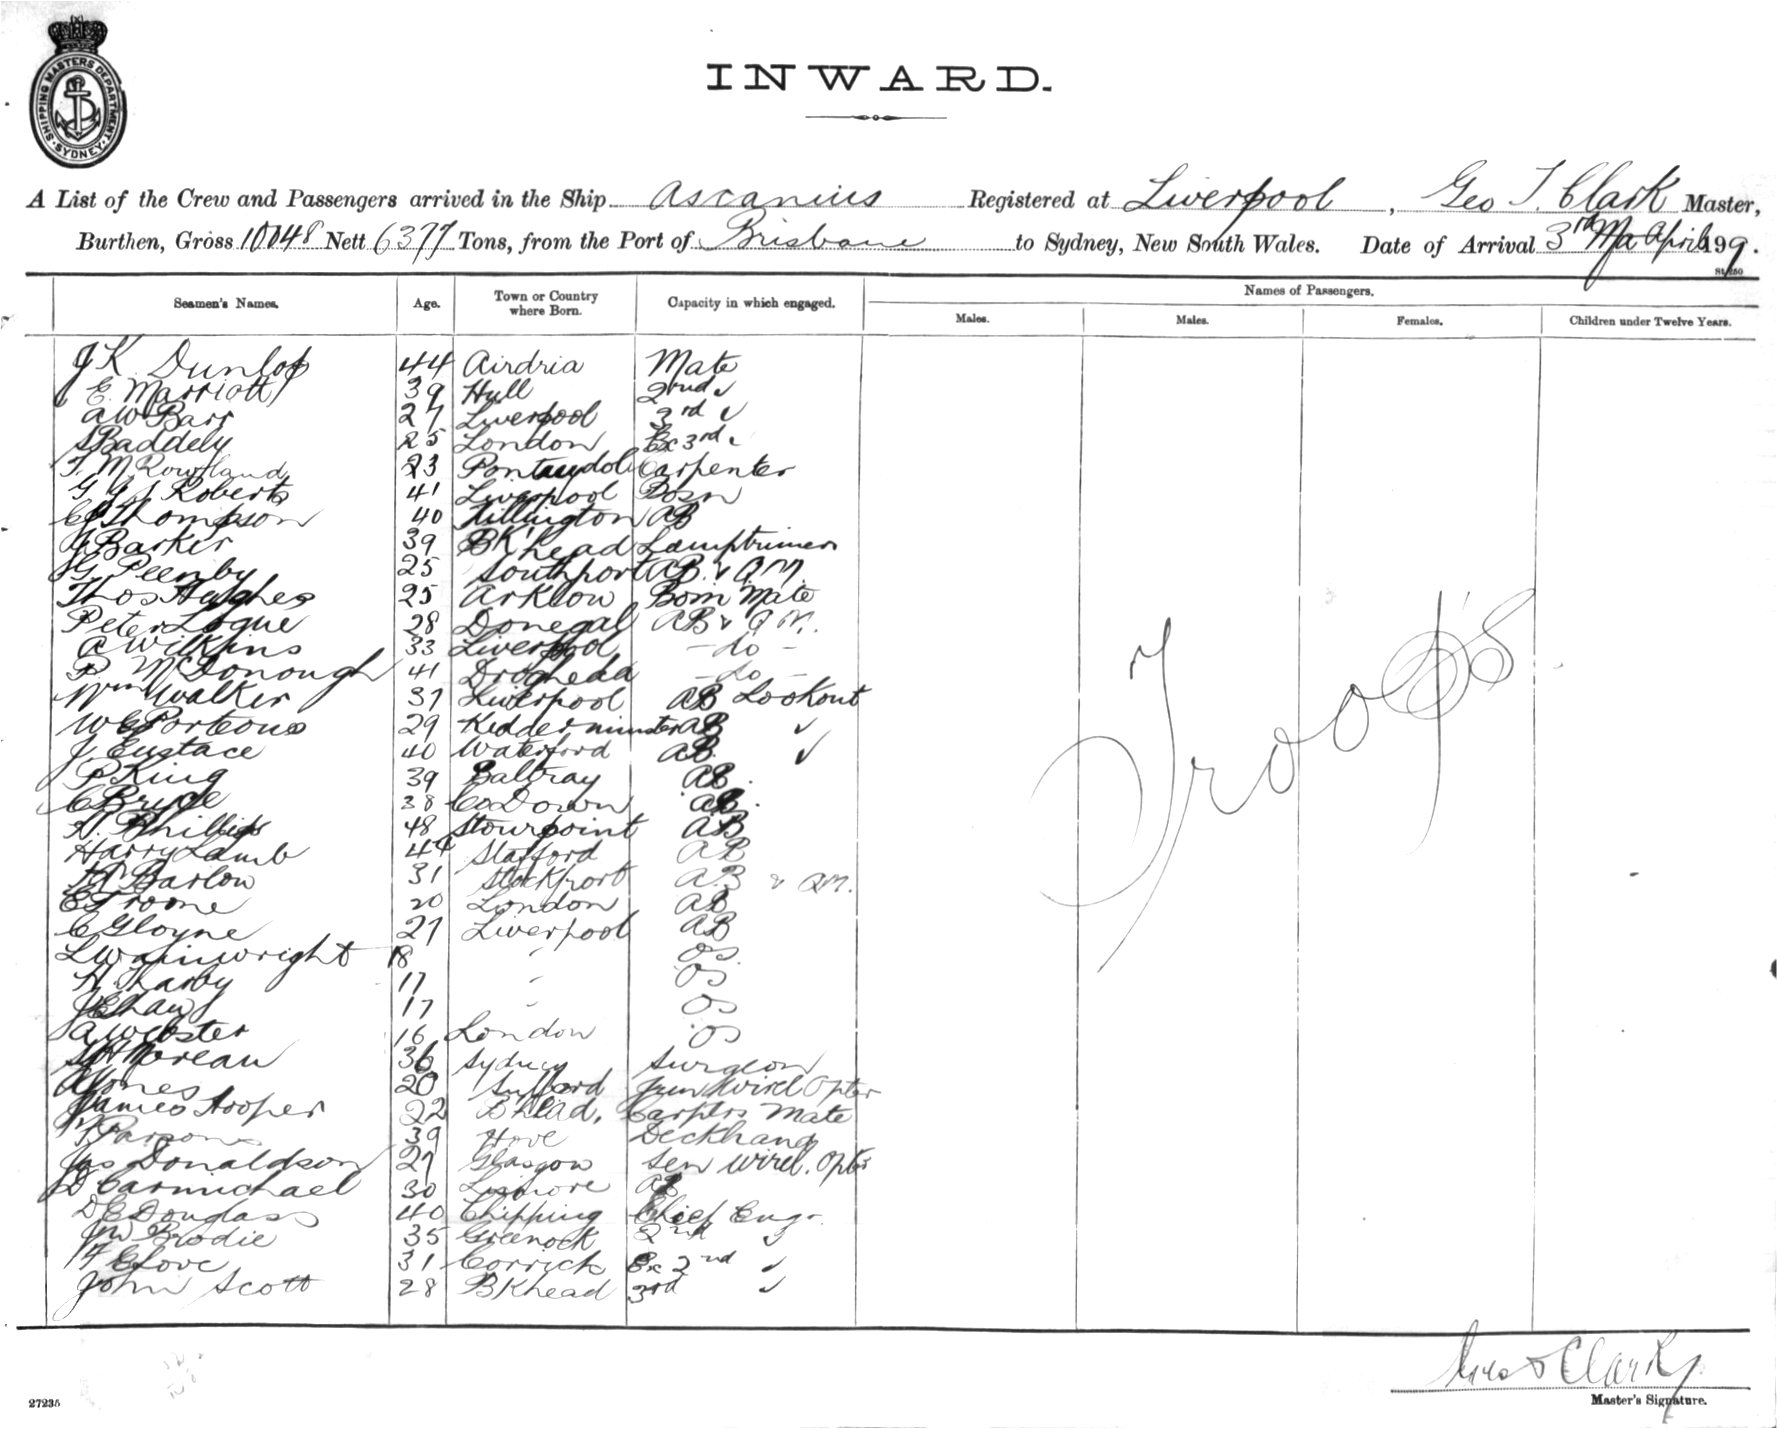 SHIPPING MASTERS DEPARTMENT. SYDNEY.
INWARD.
A List of the Crew and Passengers arrived in the Ship Ascanius Registered at Liverpool, Geo T. Clark Master,
Burthen, Gross 10048 Nett 6377 Tons, from the Port of Brisbane to Sydney, New South Wales. Date of Arrival 3rd April 199.
Seamen's Names. Age. Town or Country where Born. Capacity in which engaged. Names of Passengers.
Males. Males. Females. Children under Twelve Years.
JK Dunlop 44 Airdria Mate
E. Marriott 39 Hull 2nd ✓
AW Barr 27 Liverpool 3rd ✓
S Baddely 25 London Ex 3rd
T. M. Rowland 23 Carpenter
Roberts 41 Liverpool Bosn
Thompson 40 AB
J Barker 39 BK'head Lamptrimer
G Peenby 25 Southport AB & QM.
Thos Hughes 25 Arklow Bosn Mate
Peter Logue 28 Donegal AB & QM.
A Wilkins 33 Liverpool - do -
P McDonough 41 Drogheda - do -
Wm Walker 37 Liverpool AB Lookout
W E Porteous 29 Kidderminster AB ✓
J. Eustace 40 Waterford AB ✓
P King 39 Baltray AB.
C Bryde 38 Co Down AB.
H. Phillips 48 Stourpoint AB
Harry Lamb 44 Stafford AB
Barlow 31 Stockport AB & QM.
E Froome 20 London AB
C Gloyne 27 Liverpool AB
L Wainwright 18 " OS
H. Tharby 17 " OS
J E Shaw 17 " OS
A Webster 16 London OS
Moreau 36 Sydney Surgeon
A Jones 20 Jun Wirel Opter
James Hooper 22 B'head. Carptrs Mate
Parsons 39 Hove Deckhand
Jas Donaldson 27 Glasgow Sen Wirel. Optr
D Carmichael 30 Lismore AB
D E Douglas 40 Chipping Chief Engr
JW Brodie 35 Greenock 2nd ✓
F E Love 31 Corrick Ex 2nd ✓
John Scott 28 BKhead 3rd ✓
Troops
Geo T Clark
Master's Signature.
27235